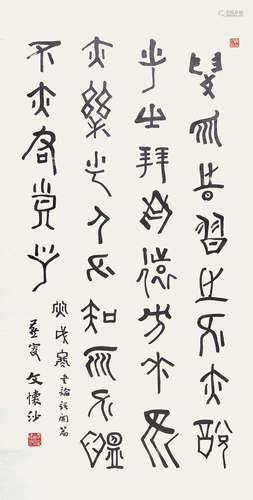 學而時習之不亦說
乎有朋自遠方來不
亦樂乎人不知而不慍
不亦君子乎
書論語開篇
燕叟 文懷沙